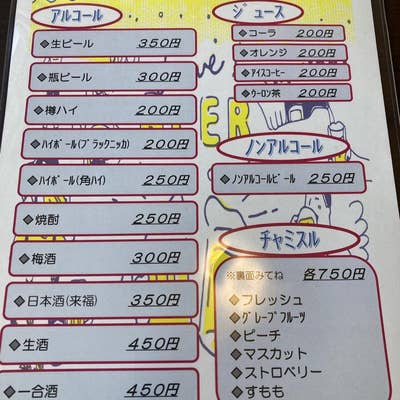 アルコール
◆生ビール 350円
◆瓶ビール 300円
◆樽ハイ 200円
◆ハイボール(ブラックニッカ) 200円
◆ハイボール(角ハイ) 250円
◆焼酎 250円
◆梅酒 300円
◆日本酒(来福) 350円
◆生酒 450円
◆一合酒 450円
ジュース
◆コーラ 200円
◆オレンジ 200円
◆アイスコーヒー 200円
◆ウーロン茶 200円
ノンアルコール
◆ノンアルコールビール 250円
チャミスル
※裏面みてね 各750円
◆フレッシュ
◆グレープフルーツ
◆ピーチ
◆マスカット
◆ストロベリー
◆すもも